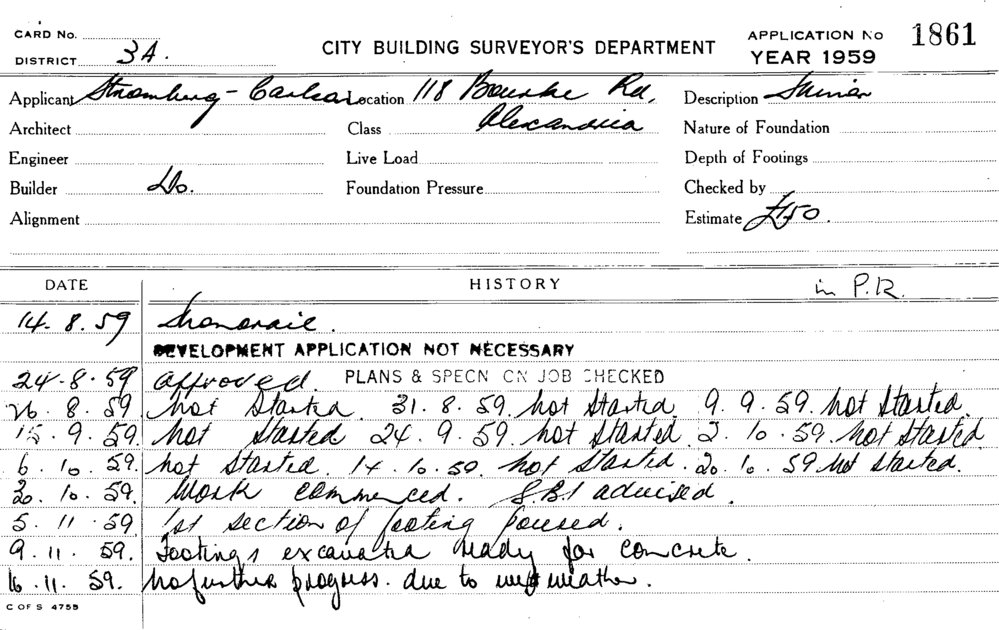 CARD NO.
DISTRICT 3A.
CITY BUILDING SURVEYOR'S DEPARTMENT
APPLICATION NO 1861
YEAR 1959
Applicant Stromberg-Carlson Location 118 Bourke Rd, Description
Architect Class Alexandria Nature of Foundation
Engineer Live Load Depth of Footings
Builder Do. Foundation Pressure Checked by
Alignment Estimate £150.
DATE HISTORY in P.R.
14. 8. 59
DEVELOPMENT APPLICATION NOT NECESSARY
24. 8. 59 Approved. PLANS & SPECN ON JOB CHECKED
26. 8. 59. not Started. 31. 8. 59. not Started. 9. 9. 59. not Started.
15. 9. 59. not Started 24. 9. 59. not Started. 2. 10. 59. not Started
6. 10. 59. not Started. 14. 10. 59. not Started. 20. 10. 59 not started.
30. 10. 59. Work commenced. S.B.I advised.
5. 11. 59 1st section of footing poured.
9. 11. 59. Footings excavated ready for concrete.
16. 11. 59. No further progress. due to wet weather.
C OF S 4755